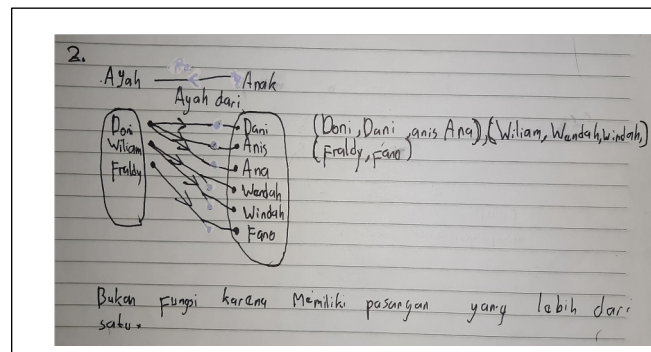 2.
Ayah Anak
Ayah dari
Doni
Wiliam
Fraldy
Dani
Anis
Ana
Wendah
Windah
Fano
(Doni, Dani, anis Ana), (Wiliam, Wendah, windah,)
(Fraldy, Fano)
Bukan Fungsi karena Memiliki pasangan yang lebih dari
satu.